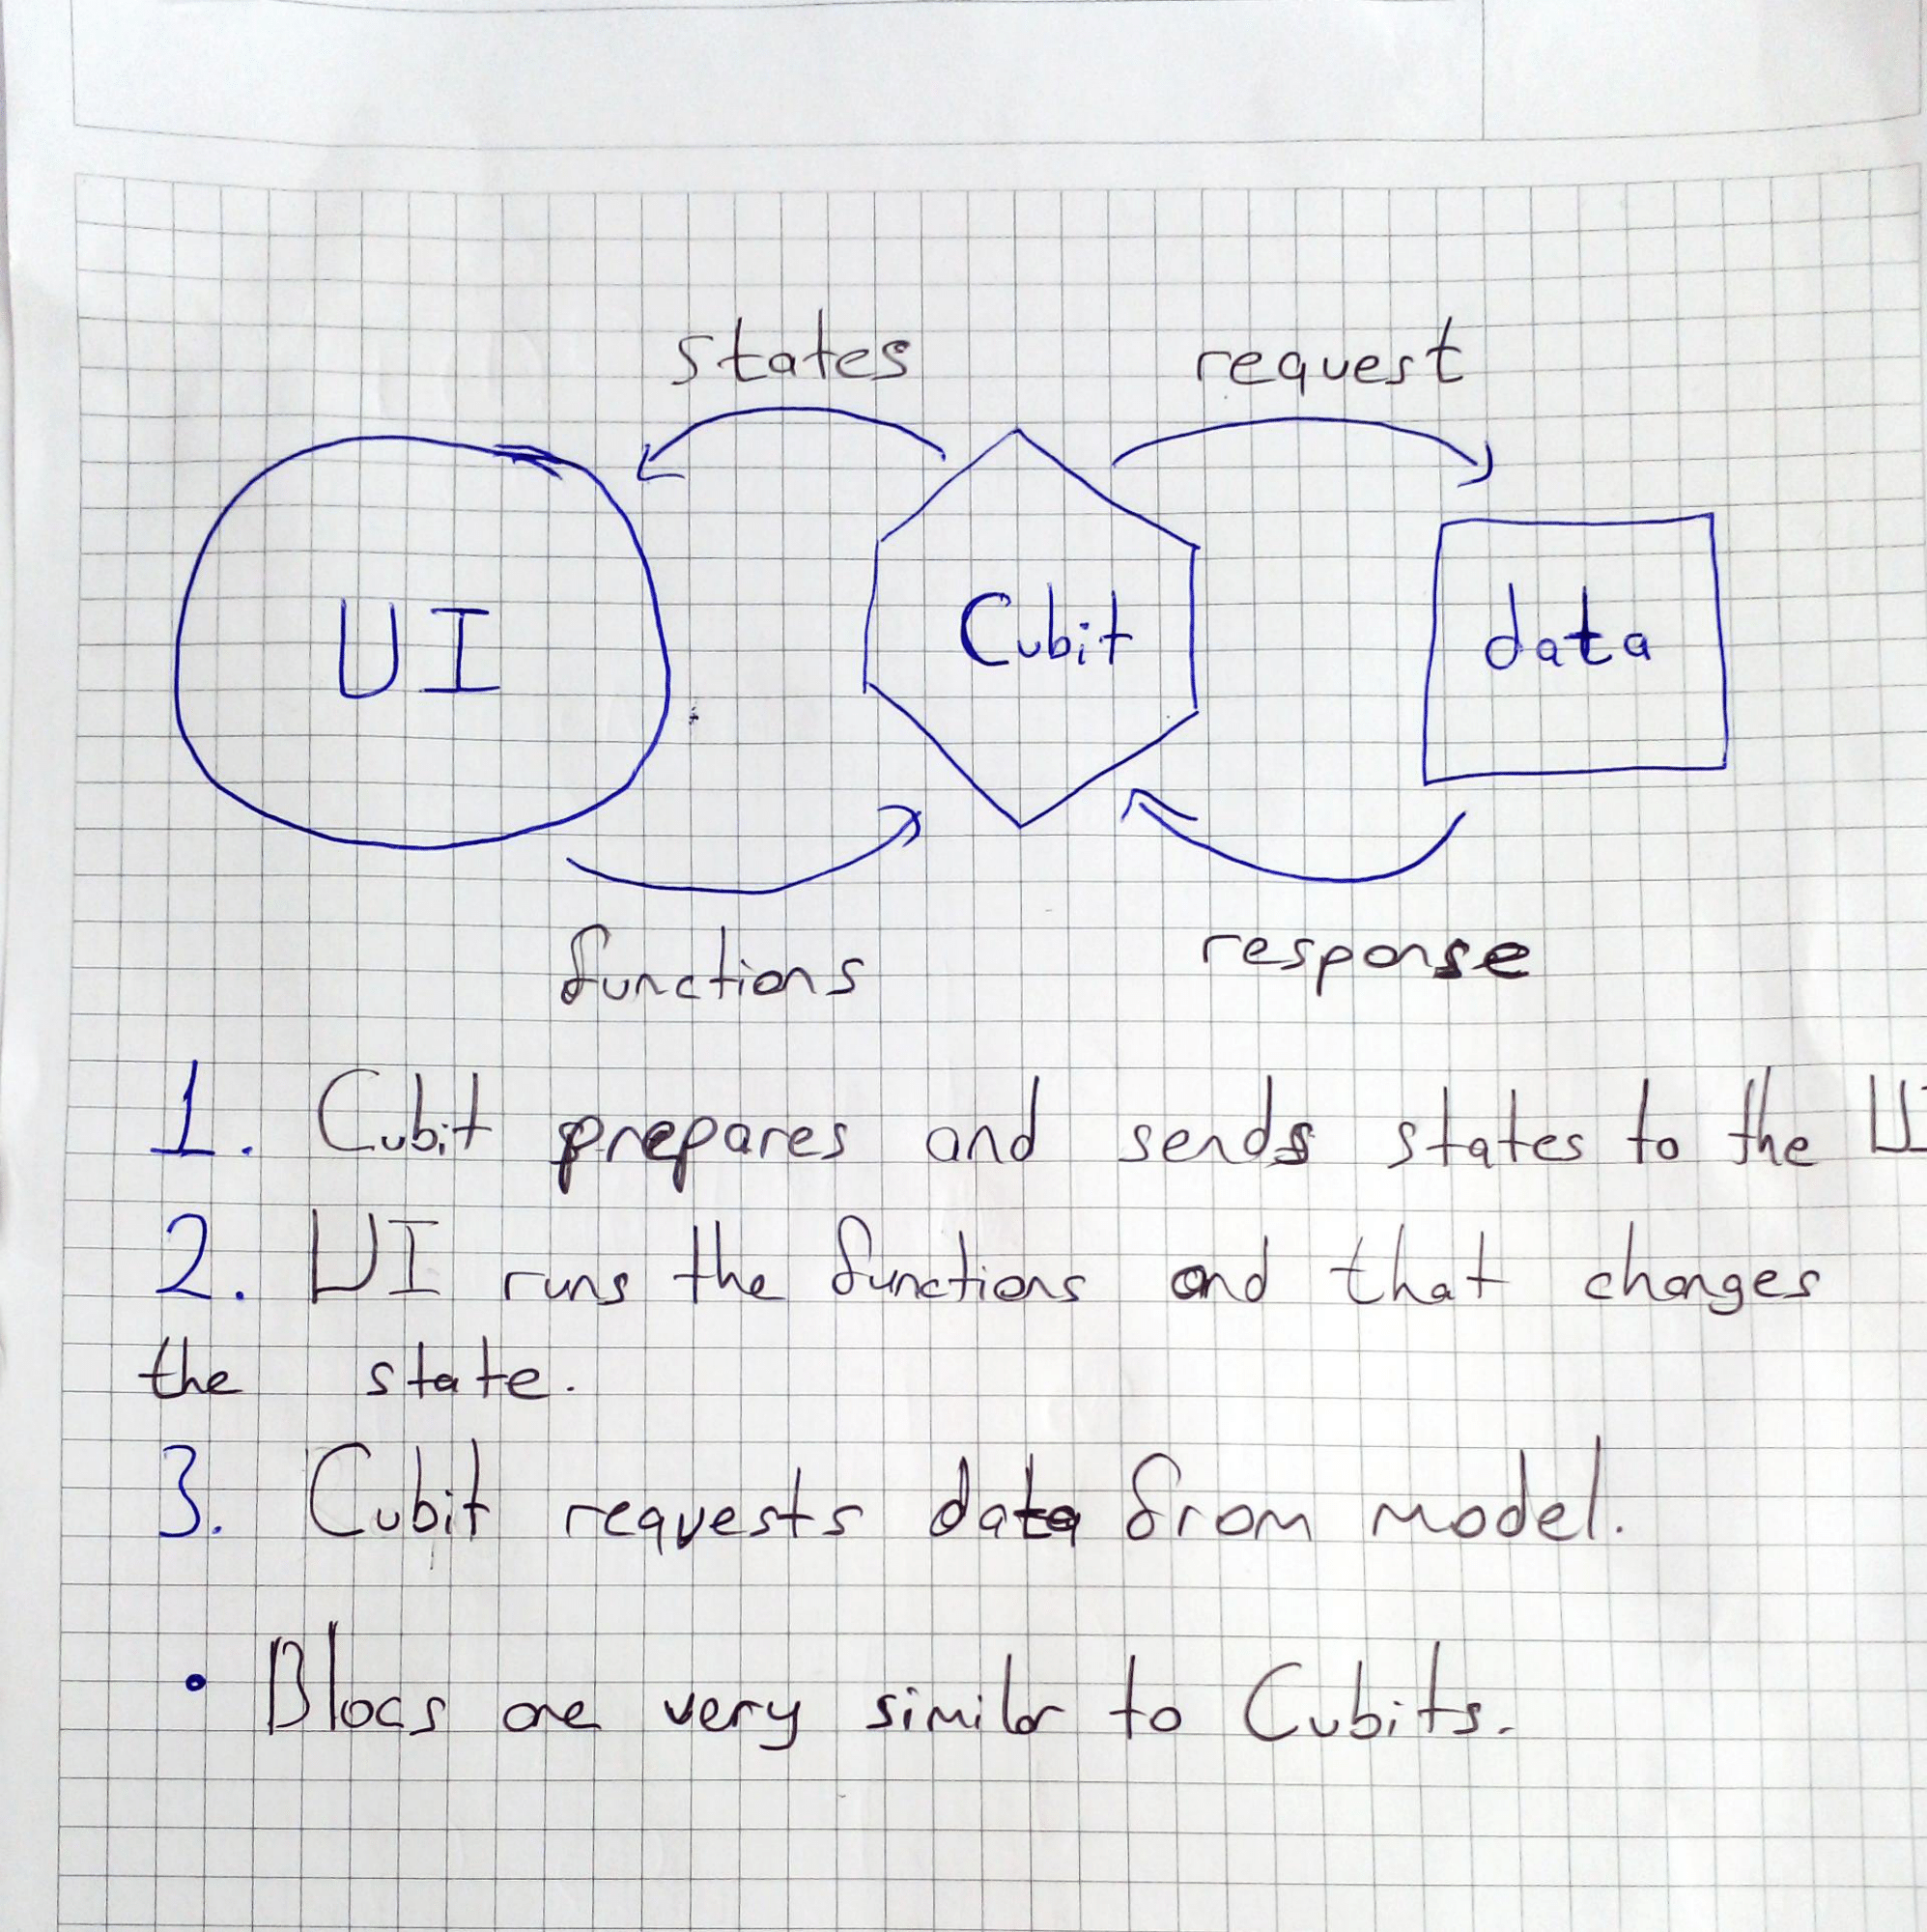 states request
UI Cubit data
functions response
1. Cubit prepares and sends states to the U
2. UI runs the functions and that changes
the state.
3. Cubit requests data from model.
• Blocs are very similar to Cubits.